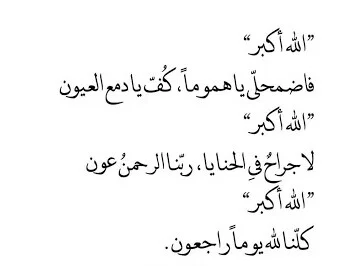 ”الله أكبر“
فاضمحلّي يا هموماً، كُفّ يا دمع العيون
”الله أكبر“
لا جراحٌ في الحنايا، ربّنا الرحمنُ عون
”الله أكبر“
كلّنا لله يوماً راجعون.